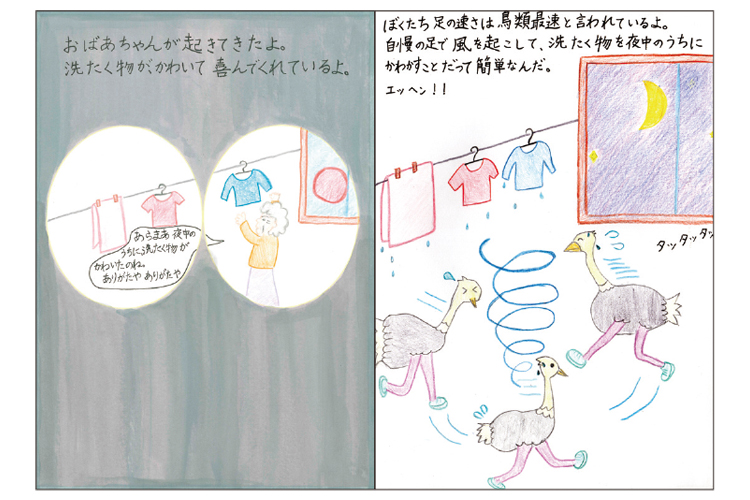 ぼくたち足の速さは鳥類最速と言われているよ。
自慢の足で風を起こして、洗たく物を夜中のうちに
かわかすことだって簡単なんだ。
エッヘン！！
タッタッタッ
おばあちゃんが起きてきたよ。
洗たく物が、かわいて喜んでくれているよ。
あらまあ夜中の
うちに洗たく物が
かわいたのね。
ありがたや ありがたや